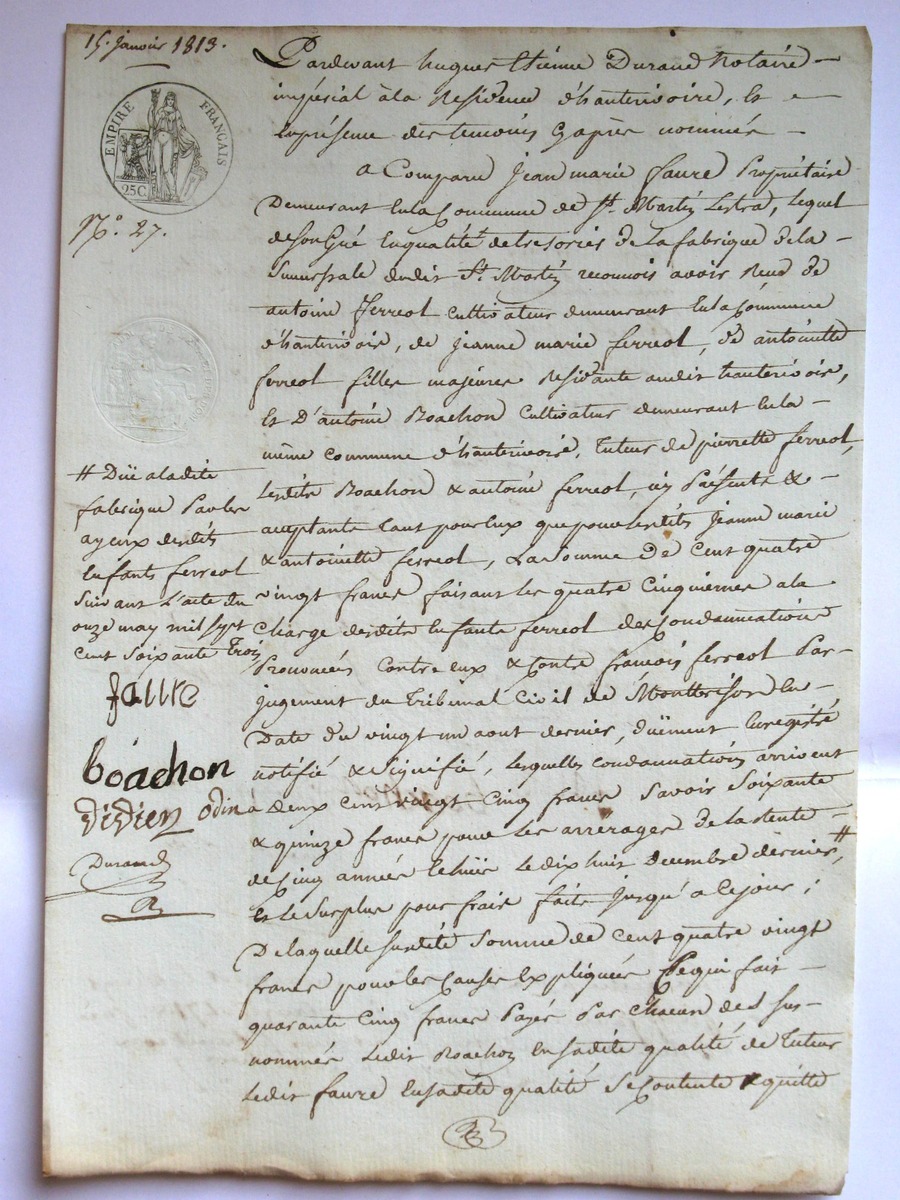 15. janvier 1813.
EMPIRE FRANÇAIS
25C
N.o 27.
Pardevant hugues Etienne Durand Notaire
impérial à la Residence d'hauterivoire, Et
Enprésence des temoins Cyaprès nommés
a Comparu Jean marie faure Propriétaire
Demeurant Enla Commune de St. Martin Lestra, lequel
de Son Gré Enqualité de tresorier de La fabrique de la
Succursale dudit St. Martin reconnois avoir Reçu de
antoine Ferreol Cultivateur demeurant Enla Commune
d'hauterivoire, de Jeanne marie ferreol, de antoinette
ferreol filles majeures Residante audit hauterivoire,
Et D'antoine Boachon Cultivateur demeurant Enla
même commune d'hauterivoire, Tuteur de pierrette ferreol,
Lesdits Boachon & antoine ferreol, icy Présents &
acceptants tant pour Eux que pour lesdits Jeanne marie
& antoinette ferreol, La Somme de Cent quatre
vingt francs faisant les quatre Cinquiemes a la
Charge desdits Enfants ferreol des Condamnations
Prononcées Contre eux & Contre françois ferreol Par
jugement du Tribunal Civil de Montbrison En
Date du vingt un aout dernier, duëment Enregistré
notifié & Signifié, lesquelles Condamnations arrivent
à deux cent vingt Cinq francs Savoir Soixante
& quinze francs pour les arrérages de la Rente
de Cinq années Echüe Le dix huit Decembre dernier, #
Et Le Surplus pour frais faits jusqu'a Cejour ;
De laquelle susdite Somme de Cent quatre vingt
francs pour les Causes Expliquées Ce qui fait
quarante Cinq francs Payés Par Chacun des sus
nommés Ledit Boachon Ensadite qualité de Tuteur
Ledit faure Ensadite qualité Se Contente & quitte
# Düe aladite
fabrique Par les
ayeux desdits
Enfants ferreol
Suivant L'acte du
onze may mil sept
Cent Soixante Trois
faure
boachon
didier odin
Durand